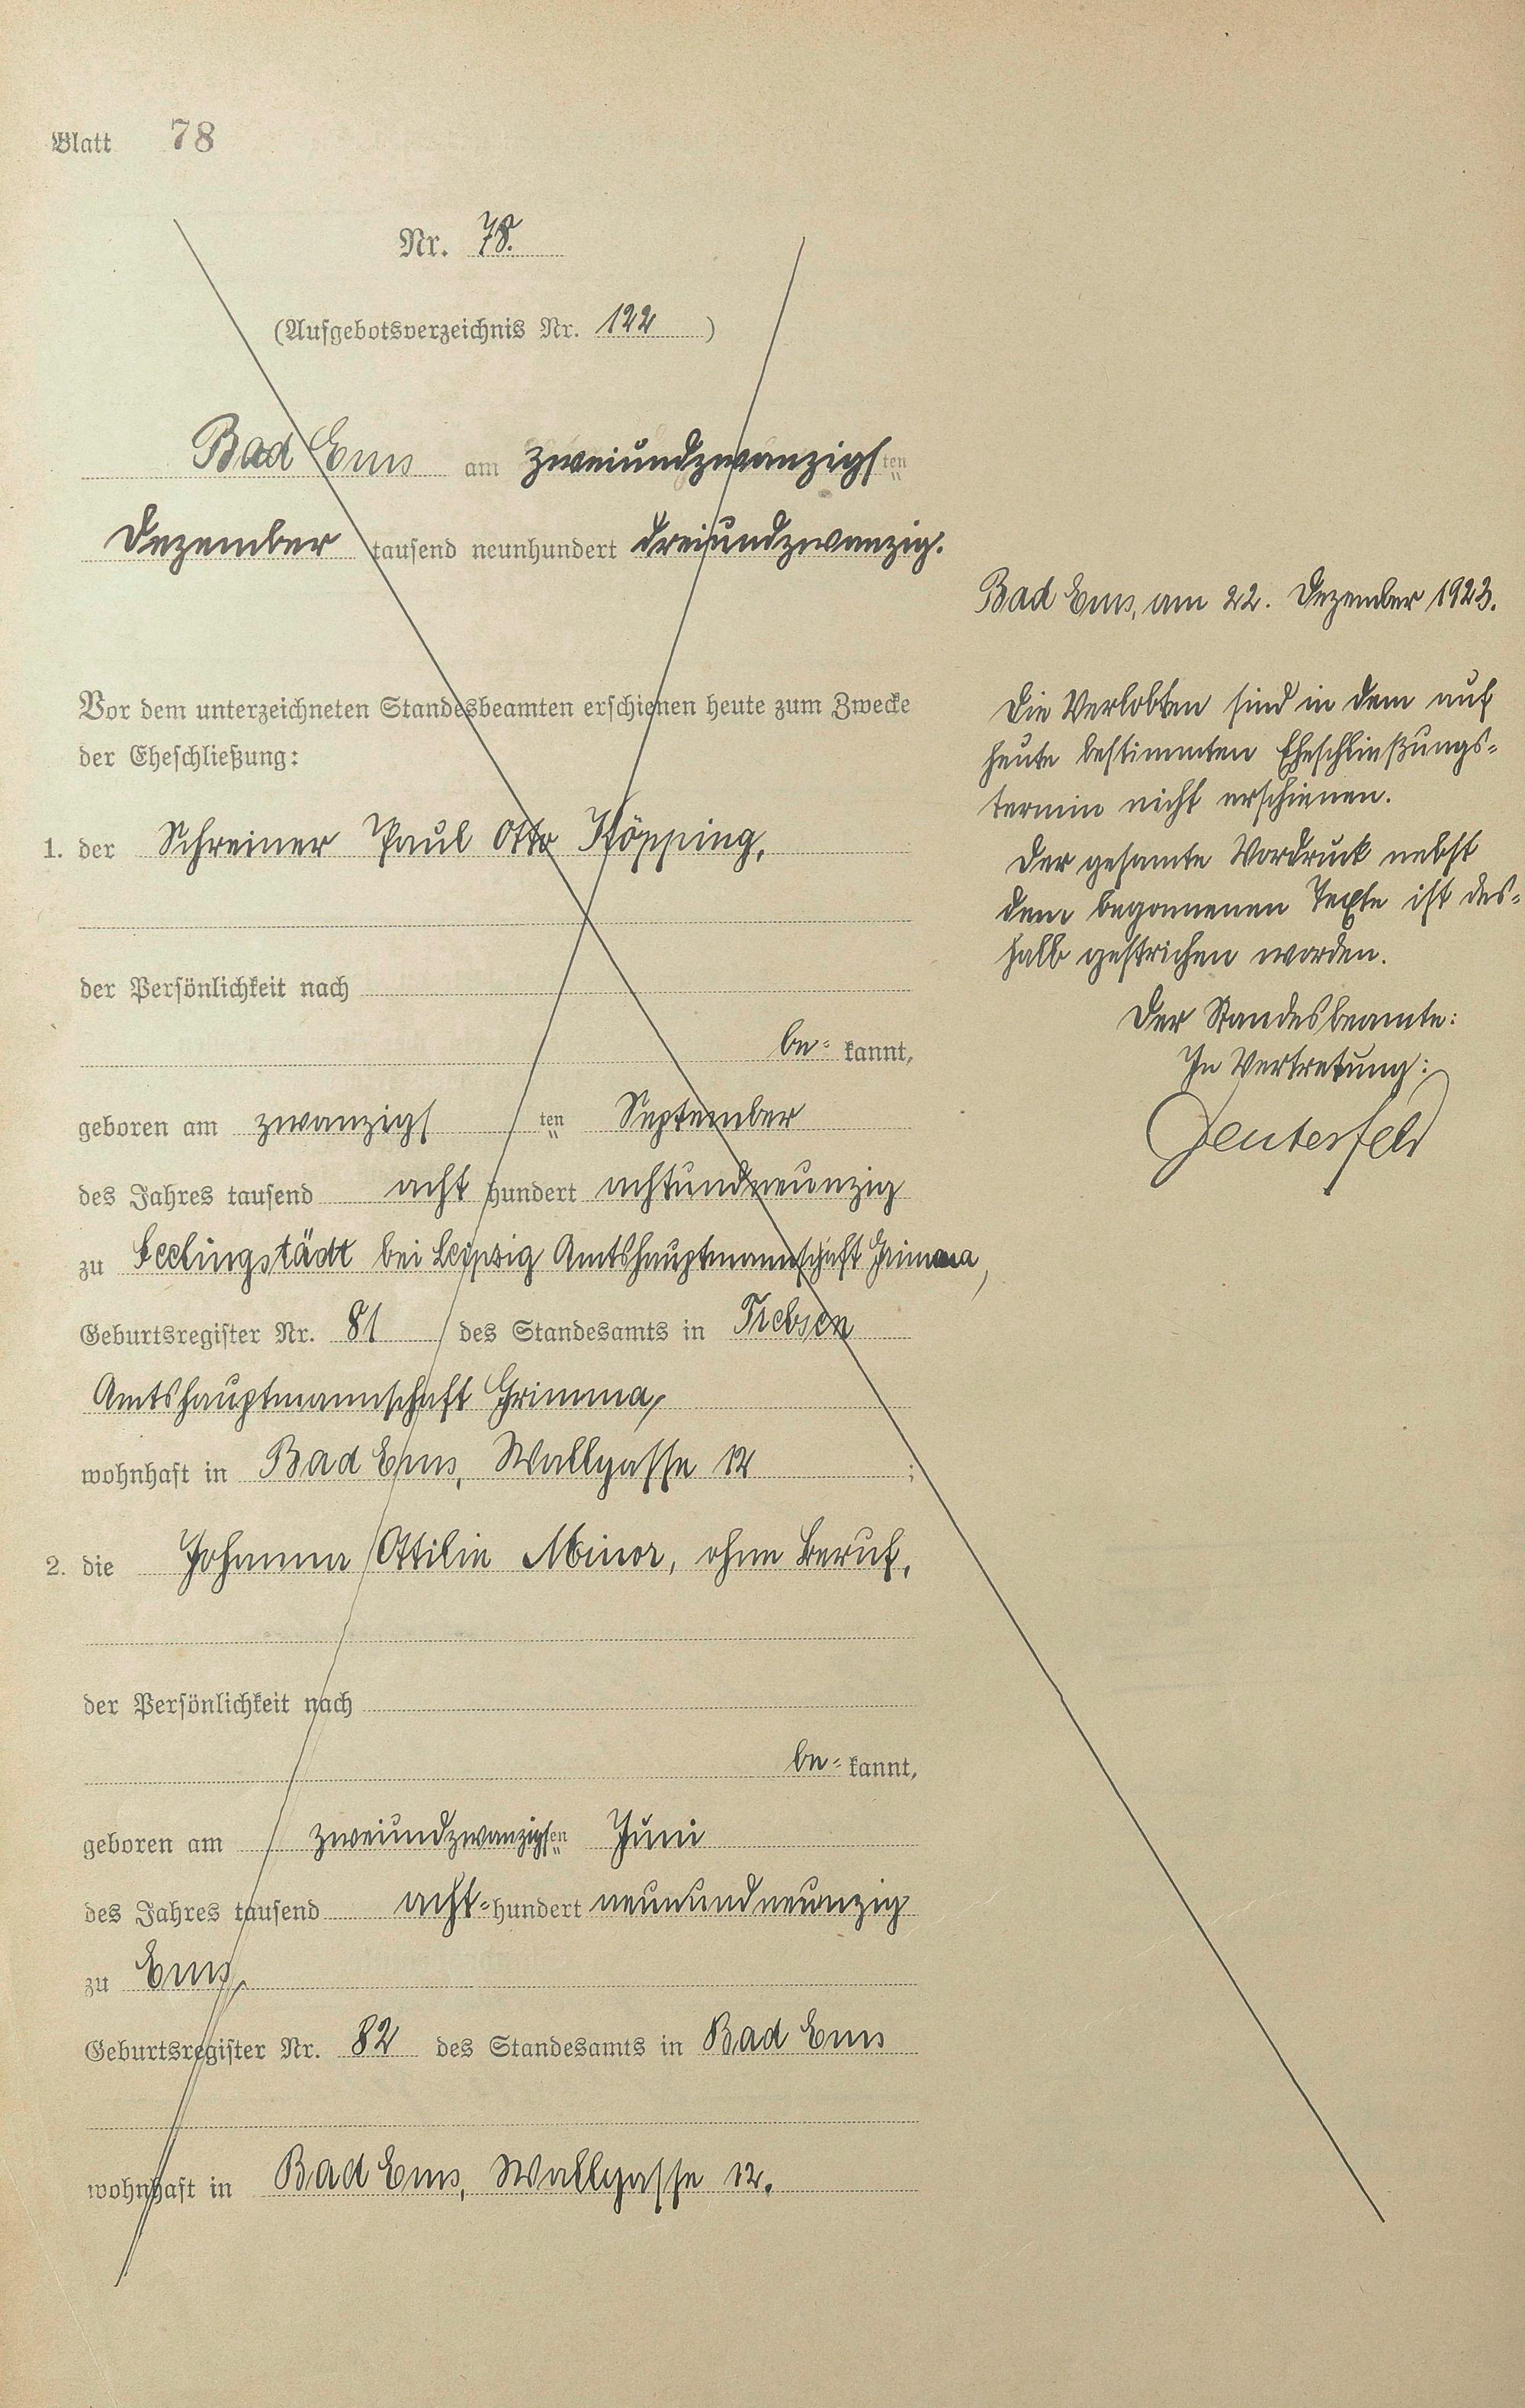 Blatt 78
Nr. 78.
(Aufgebotsverzeichnis Nr. 122)
Bad Ems am zweiundzwanzigsten
Dezember tausend neunhundert dreiundzwanzig.
Vor dem unterzeichneten Standesbeamten erschienen heute zum Zwecke
der Eheschließung:
1. der Schreiner Paul Otto Köpping,
der Persönlichkeit nach
be= kannt,
geboren am zwanzigsten September
des Jahres tausend acht hundert achtundneunzig
zu Seelingstädt bei Leipzig Amtshauptmannschaft Grimma,
Geburtsregister Nr. 81 des Standesamts in Trebsen
Amtshauptmannschaft Grimma,
wohnhaft in Bad Ems, Wallgasse 12;
2. die Johanna Ottilie Minor, ohne Beruf,
der Persönlichkeit nach
be= kannt,
geboren am zweiundzwanzigsten Juni
des Jahres tausend acht=hundert neunundneunzig
zu Ems,
Geburtsregister Nr. 82 des Standesamts in Bad Ems
wohnhaft in Bad Ems, Wallgasse 12.
Bad Ems, am 22. Dezember 1923.
Die Verlobten sind in dem auf
heute bestimmten Eheschließungs=
termin nicht erschienen.
Der gesamte Vordruck nebst
dem begonnenen Texte ist des=
halb gestrichen worden.
Der Standesbeamte:
In Vertretung: